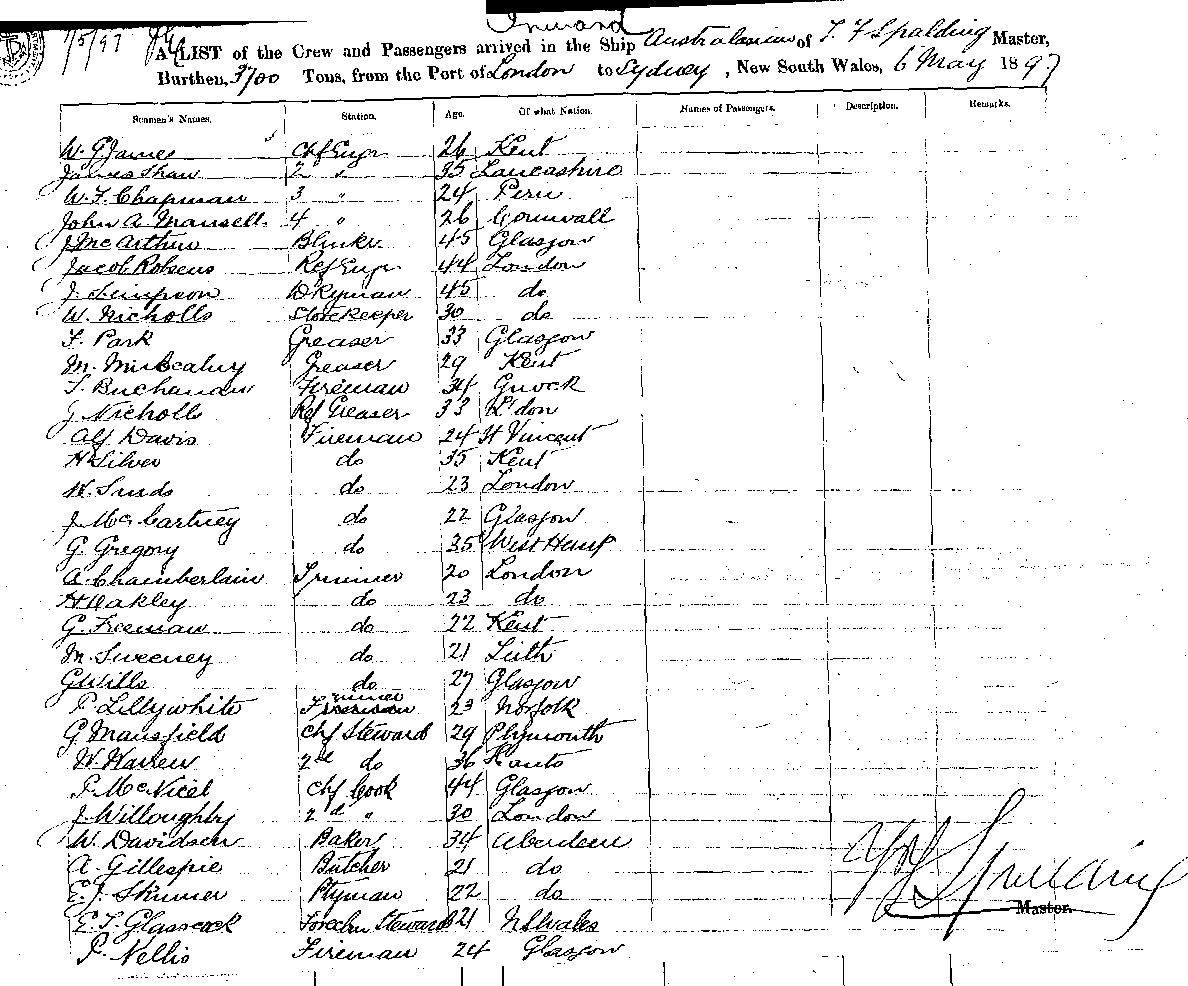 Inward
7/5/97
A LIST of the Crew and Passengers arrived in the Ship Australasian of T. F Spalding Master,
Burthen, 3700 Tons, from the Port of London to Sydney, New South Wales, 6 May 1897
Seamen's Names. Station. Age. Of what Nation. Names of Passengers. Description. Remarks.
W. G James Chf Engr 26 Kent
James Shaw 2 " 35 Lancashire
W. F. Chapman 3 " 24 Peru
John A Mansell 4 " 26 Cornwall
J McArthur 45 Glasgow
Jacob Robsens Ref Engr 44 London
J. Simpson Dkyman 45 do
W. Nicholls Storekeeper 30 do
F. Park Greaser 33 Glasgow
M. Greaser 29 Kent
T. Buchanan Fireman 34 Gnock
J Nicholls Ref Greaser 33 L'don
Alf Davis Fireman 24 St Vincent
H Silver do 35 Kent
W. do 23 London
J. McCartney do 22 Glasgow
G. Gregory do 35 West Ham
A. Chamberlain Trimmer 20 London
H Oakley do 23 do
G. Freeman do 22 Kent
M. Sweeney do 21 Leith
G Wills do 27 Glasgow
P. Lillywhite Trimmer 23 Norfolk
G. Mansfield Chf Steward 29 Plymouth
W. Warren 2nd do 36 Hants
P. McNicol Chf Cook 44 Glasgow
J. Willoughby 2nd " 30 London
W. Davidson Baker 34 Aberdeen
A. Gillespie Butcher 21 do
E. J. Skinner Ptyman 22 do
E T. Glasscock Forecbn Steward 21 N S Wales
P. Nellis Fireman 24 Glasgow
Master.